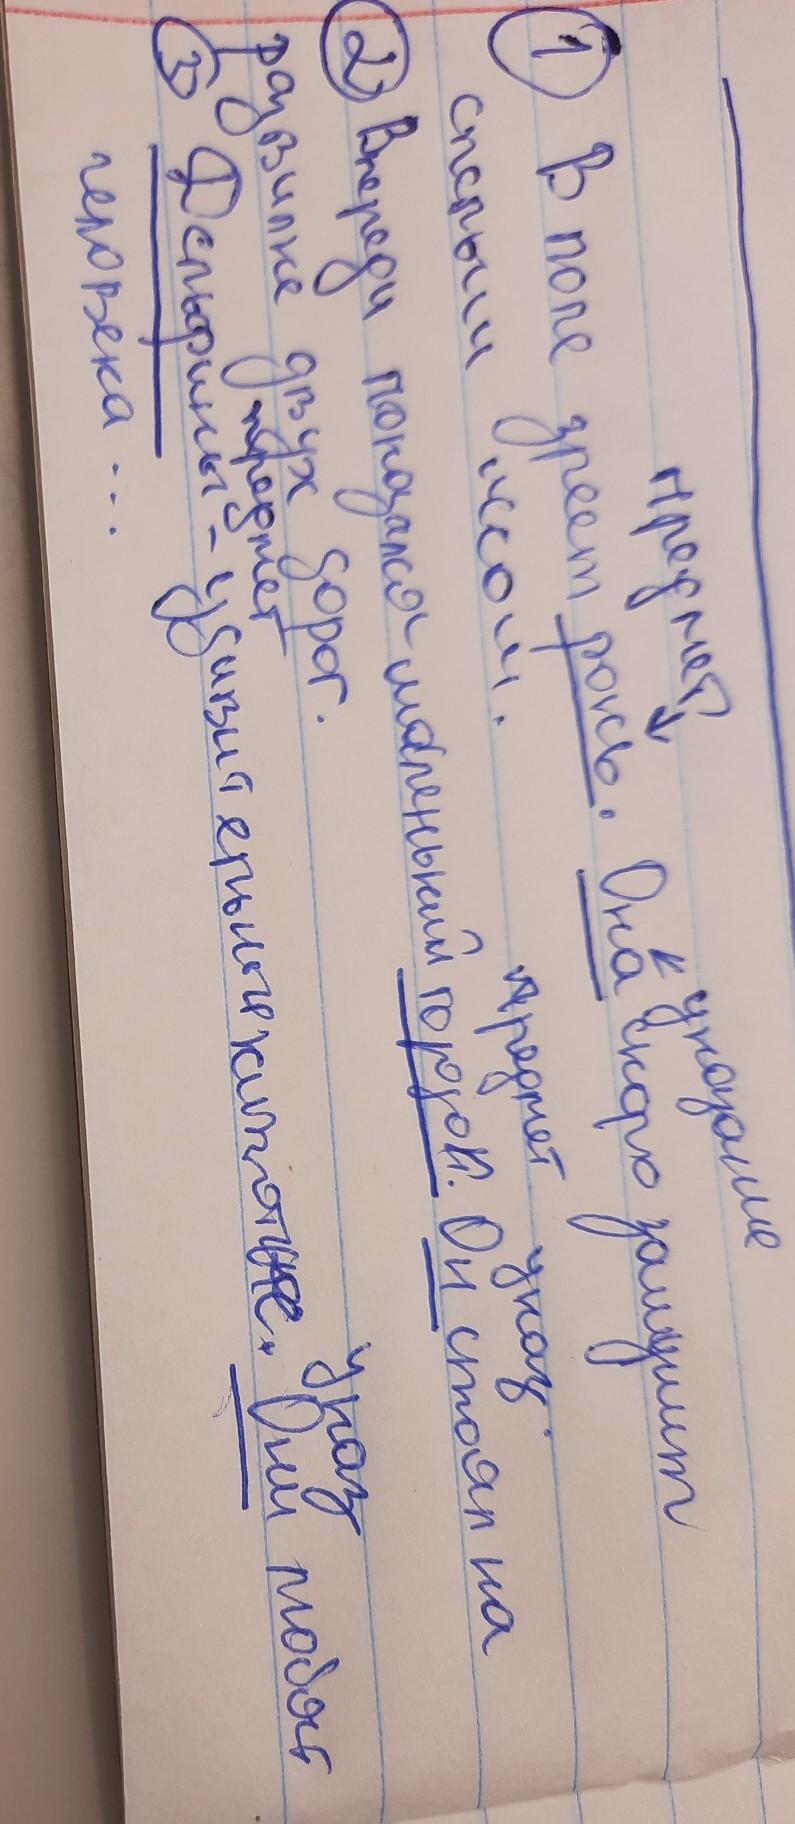 предмет указание
① В поле зреет рожь. Она скоро зашумит
спелым лесом.
предмет указ.
② Впереди показался маленький городок. Он стоял на
развилке двух дорог.
предмет указ
③ Дельфины - удивительные животные. Они любят
человека...